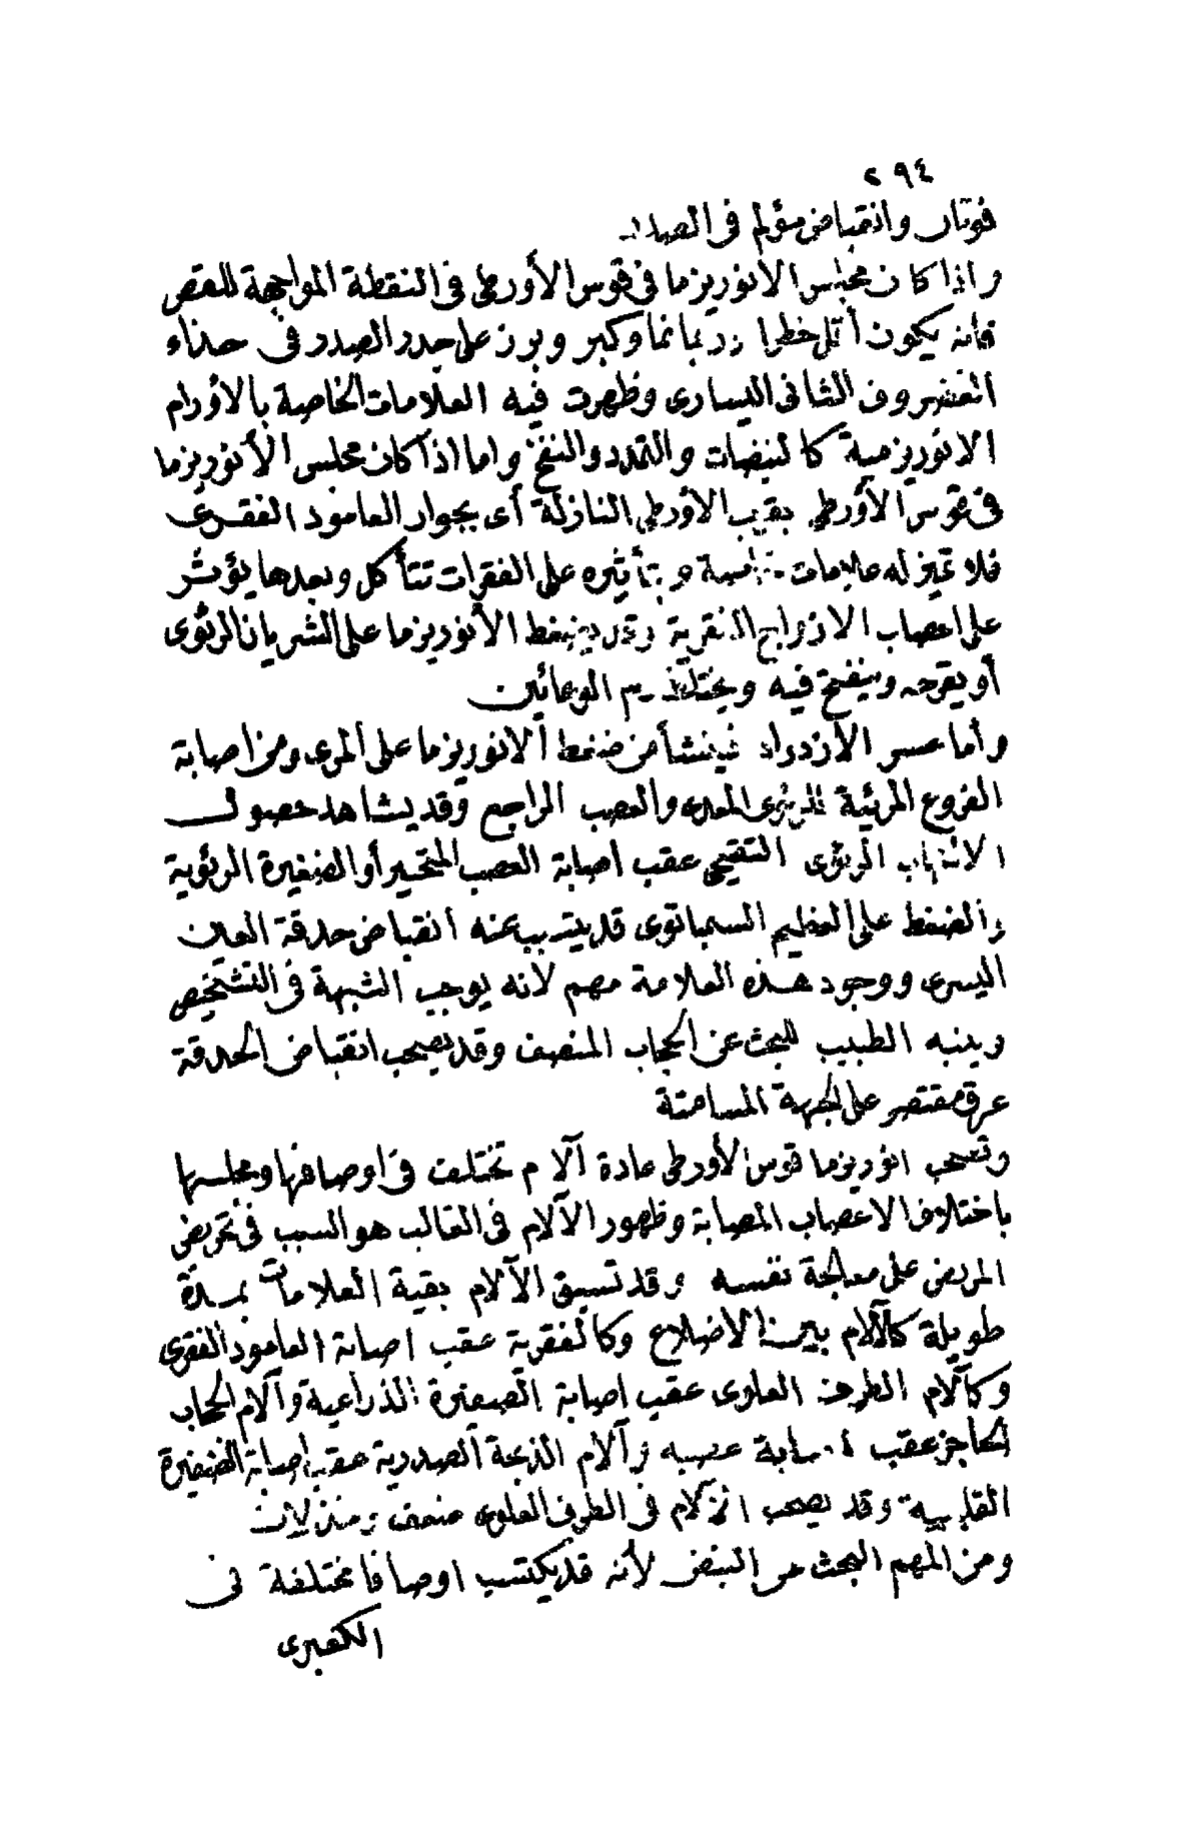 ٢٩٤
فوتان وانقباض مؤلم فى الصدر
واذا كان مجلس الانوريزما فى قوس الأورطى فى النقطة المواجهة للقص
فانه يكون أقل خطرا ربما نما وكبر وبرز على جدر الصدر فى حذاء
الغضروف الثانى اليسارى وظهرت فيه العلامات الخاصة بالأورام
الانوريزمية كالنبضات والتمدد والنفخ واما اذا كان مجلس الأنوريزما
فى قوس الأورطى بقرب الأورطى النازلة أى بجوار العامود الفقرى
فلا تميز له علامات وبتأثيره على الفقرات تتأكل وبعدها يؤثر
على اعصاب الازواج الفقرية وقد يضغط الأنوريزما على الشريان الرئوى
أو يقرحه وينفتح فيه ويختلط دم الوعائين
وأما عسر الازدراد فينشأ من ضغط الانوريزما على المرى ومن اصابة
الفروع المريئية للرئوى المعدى والعصب الراجع وقد يشاهد حصول
الالتهاب الرئوى التقيحى عقب اصابة العصب المتحير أو الضفيرة الرئوية
والضغط على العظيم السمباتوى قد يتسبب عنه انقباض حدقة العين
اليسرى ووجود هذه العلامة مهم لانه يوجب الشبهة فى التشخيص
وينبه الطبيب للبحث عن الحجاب المنصف وقد يصحب انقباض الحدقة
عرق مقتصر على الجهة المسامتة
وتصحب انوريزما قوس الأورطى عادة آلام تختلف فى اوصافها ومجلسها
باختلاف الاعصاب المصابة وظهور الآلام فى الغالب هو السبب فى تحريض
المريض على معالجة نفسه وقد تسبق الآلام بقية العلامات بمدة
طويلة كالآلام بين الاضلاع وكالفقرية عقب اصابة العامود الفقرى
وكآلام الطرف العلوى عقب اصابة الضفيرة الذراعية وآلام الحجاب
الحاجز عقب اصابة عصبه وآلام الذبحة الصدرية عقب اصابة الضفيرة
القلبية وقد يصحب الآلام فى الطرف العلوى ضعف
ومن المهم البحث عن النبض لأنه قد يكتسب اوصافا مختلفة فى
الكعبرى